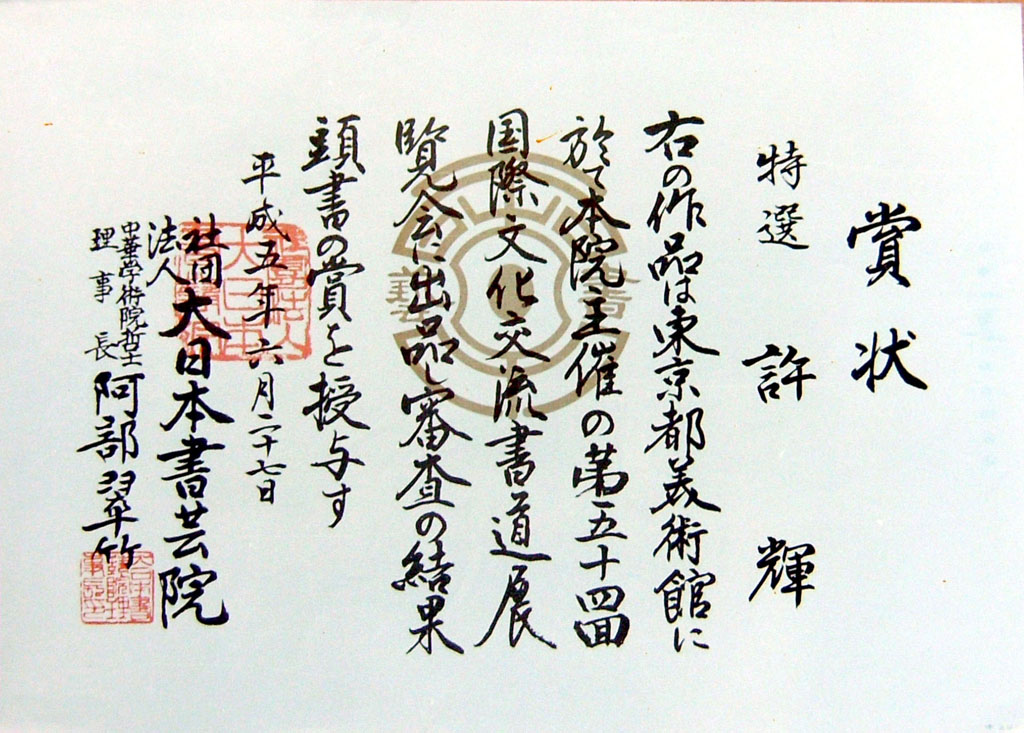 賞状
特選 許輝
右の作品は東京都美術館に
於て本院主催の第五十四回
国際文化交流書道展
覧会に出品し審査の結果
頭書の賞を授与す
平成五年六月二十七日
社団法人 大日本書芸院
中華学術院哲士
理事長 阿部翠竹